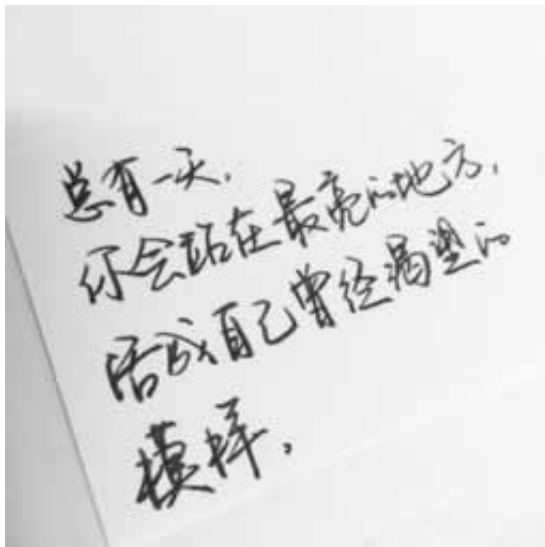 总有一天.
你会站在最亮的地方.
活成自己曾经渴望的
模样,